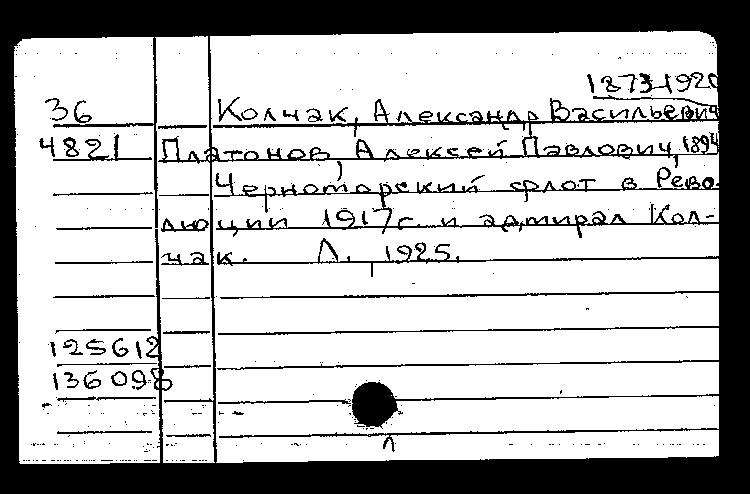 1873-1920
36 Колчак, Александр Васильевич
4821 Платонов, Алексей Павлович, 1894
Черноморский флот в Рево-
люции 1917 г. и адмирал Кол-
чак. Л. 1925.
125612
136098